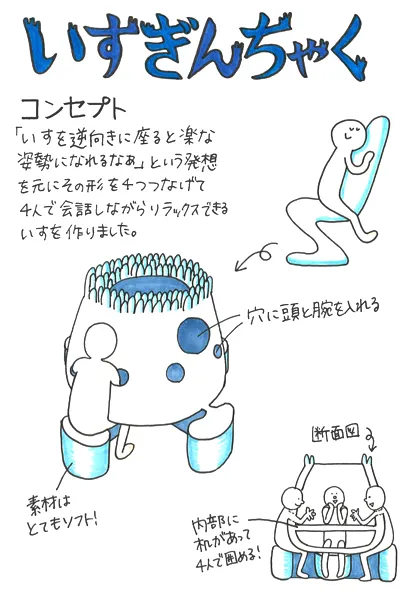 いすぎんちゃく
コンセプト
「いすを逆向きに座ると楽な
姿勢になれるなぁ」という発想
を元にその形を4つつなげて
4人で会話しながらリラックスできる
いすを作りました。
穴に頭と腕を入れる
断面図
素材は
とてもソフト!
内部に
机があって
4人で囲める!